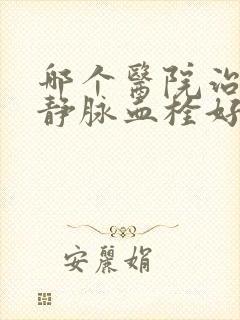 哪个醫院治
静脉血栓好
安麗娟